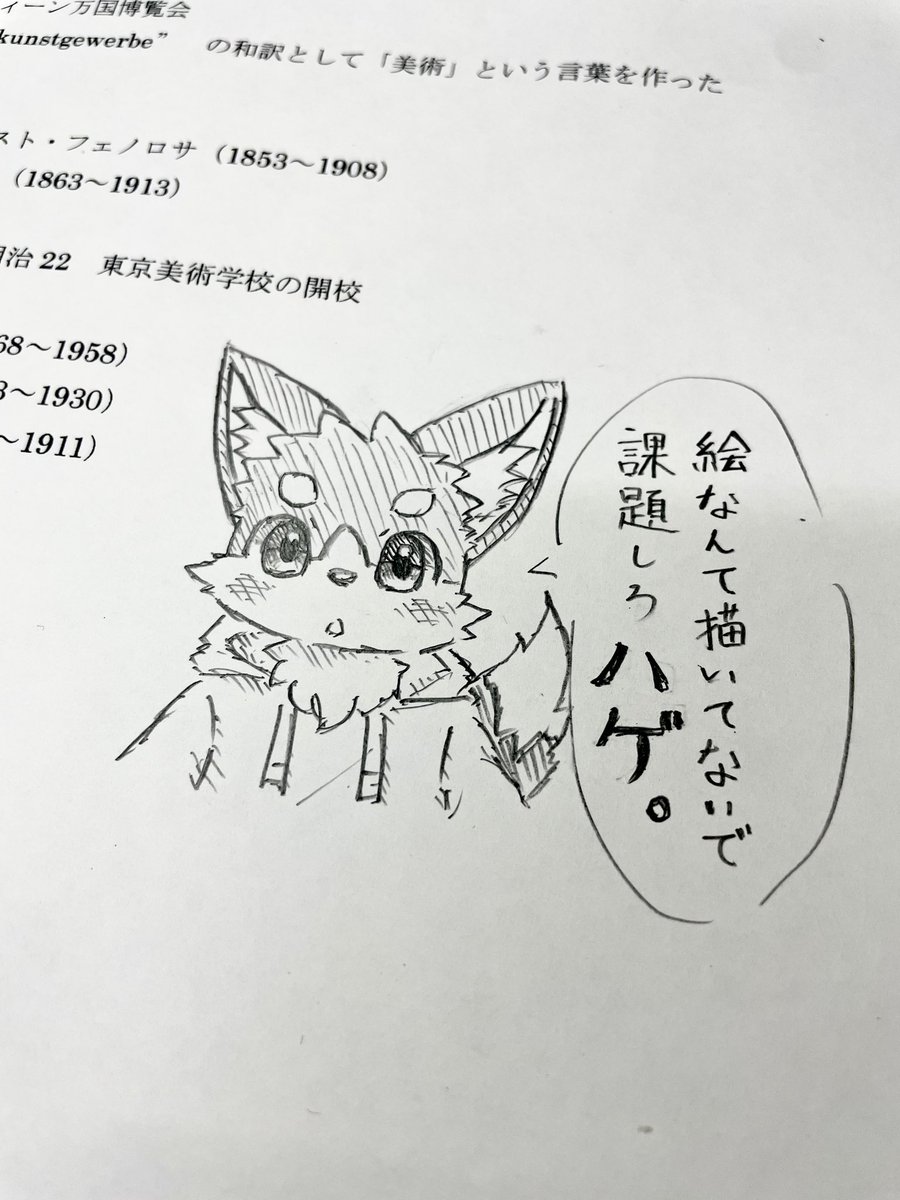 ィーン万国博覧会
kunstgewerbe” の和訳として「美術」という言葉を作った
スト・フェノロサ（1853～1908）
（1863～1913）
治 22 東京美術学校の開校
68～1958）
～1930）
～1911）
絵なんて描いてないで
課題しろハゲ。